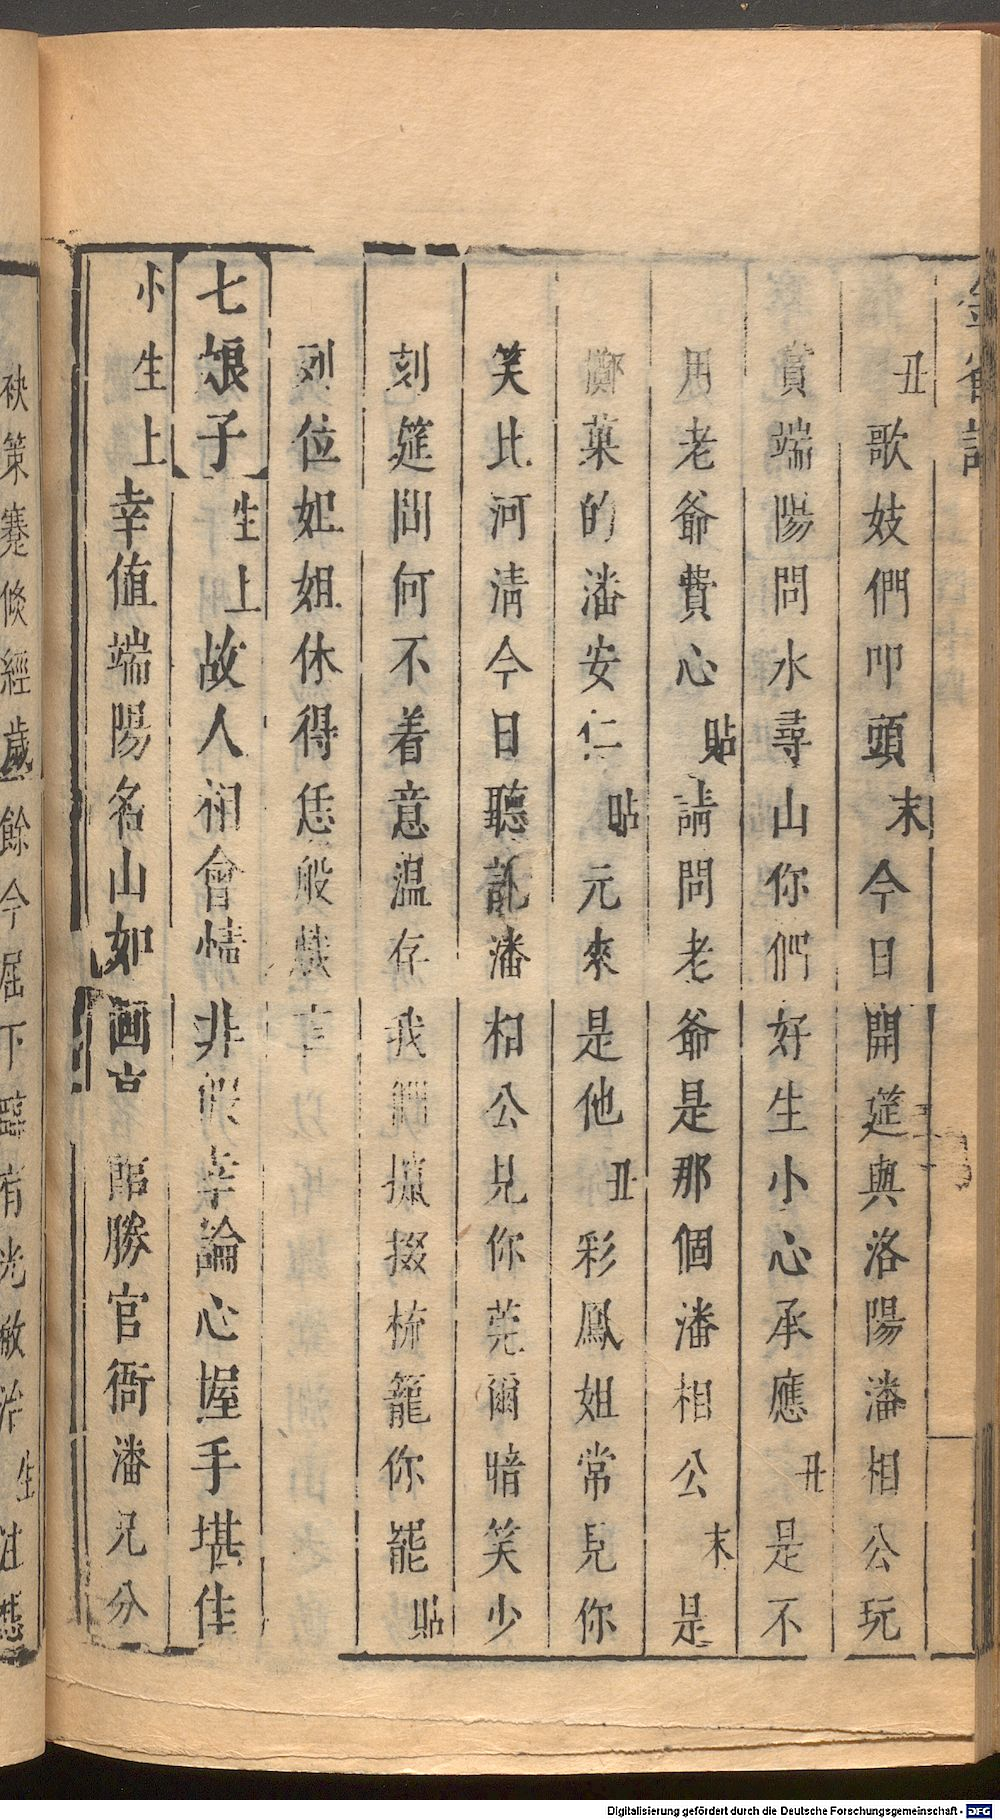 丑歌妓們叩頭末今日開筵與洛陽潘相公玩
賞端陽問水尋山你們好生小心承應丑是不
用老爺費心貼請問老爺是那個潘相公末是
擲菓的潘安仁貼元來是他丑彩鳳姐常見你
笑比河淸今日聽說潘相公見你莞爾暗笑少
刻筵間何不着意温存我們攛掇梳籠你罷貼
列位姐姐休得恁般
七娘子生上故人相會情非假幸論心握手堪佳
小生上幸值端陽名山如畫臨勝官衙潘兄分
袂策蹇倐經歲餘今屈下臨有光敝治生
Digitalisierung gefördert durch die Deutsche Forschungsgemeinschaft - DFG